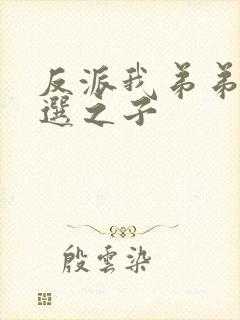 反派我弟弟
選之子
殷雲染